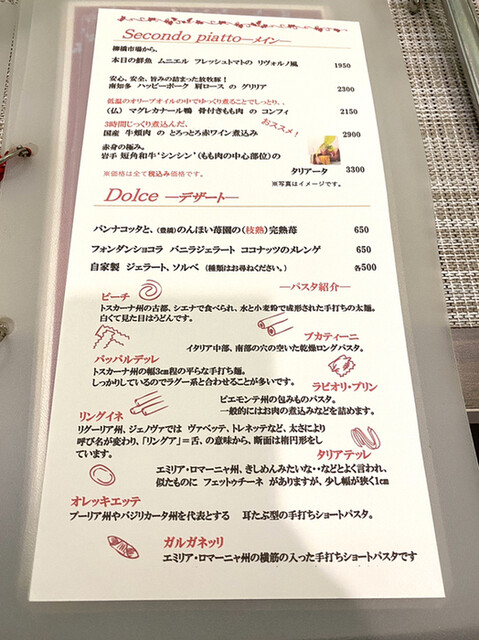 Secondo piatto―メイン―
柳橋市場から、
本日の鮮魚 ムニエル フレッシュトマトの リヴォルノ風 1950
安心、安全、旨みの詰まった放牧豚！
南知多 ハッピーポーク 肩ロース の グリリア 2300
低温のオリーブオイルの中でゆっくり煮ることでしっとり、、
（仏） マグレカナール鴨 骨付きもも肉 の コンフィ 2150
3時間じっくり煮込んだ、
おススメ！
国産 牛頬肉 の とろっとろ赤ワイン煮込み 2900
赤身の極み。
岩手 短角和牛‘シンシン’（もも肉の中心部位）の
タリアータ 3300
※価格は全て税込み価格です。
※写真はイメージです。
Dolce ―デザート―
パンナコッタと、（豊橋）のんほい苺園の（枝熟）完熟苺 650
フォンダンショコラ バニラジェラート ココナッツのメレンゲ 650
自家製 ジェラート、ソルベ （種類はお尋ねください。） 各500
―パスタ紹介―
ピーチ
トスカーナ州の古都、シエナで食べられ、水と小麦粉で成形された手打ちの太麺。
白くて見た目はうどんです。
ブカティーニ
イタリア中部、南部の穴の空いた乾燥ロングパスタ。
パッパルデッレ
トスカーナ州の幅3cm程の平らな手打ち麺。
しっかりしているのでラグー系と合わせることが多いです。
ラビオリ・プリン
ピエモンテ州の包みものパスタ。
一般的にはお肉の煮込みなどを詰めます。
リングイネ
リグーリア州、ジェノヴァでは ヴァベッテ、トレネッテなど、太さにより
呼び名が変わり、「リングア」＝舌、の意味から、断面は楕円形をし
ています。
タリアテッレ
エミリア・ロマーニャ州、きしめんみたいな・・などとよく言われ、
似たものに フェットゥチーネ がありますが、少し幅が狭く1cm
オレッキエッテ
プーリア州やバジリカータ州を代表とする 耳たぶ型の手打ちショートパスタ。
ガルガネッリ
エミリア・ロマーニャ州の横筋の入った手打ちショートパスタです